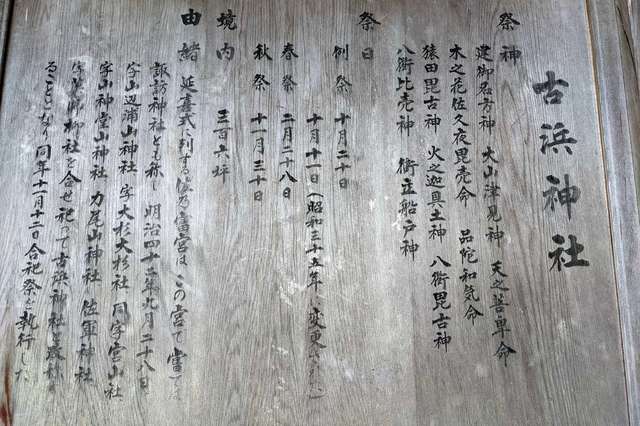 古浜神社
祭神
建御名方神 大山津見神 天之善卑命
木之花佐久夜毘売命 品陀和気命
猿田毘古神 火之迦具土神 八衢毘古神
八衢比売神 衝立船戸神
祭日
例祭 十月二十日
十月十一日(昭和三十五年に変更
春祭 二月二十八日
秋祭 十一月三十日
境内 三百六坪
由緒 延喜式に列する 富宮は この宮で
諏訪神社とも称し 明治四十二年九月二十八日
字山辺浦山神社 字大杉大杉社 同字宮山社
字山神堂山神社 力尾山神社 佐軍神社
御柳社を合せ祀って古浜神社と
ることとなり 同年十一月十二日合祀祭を執行した